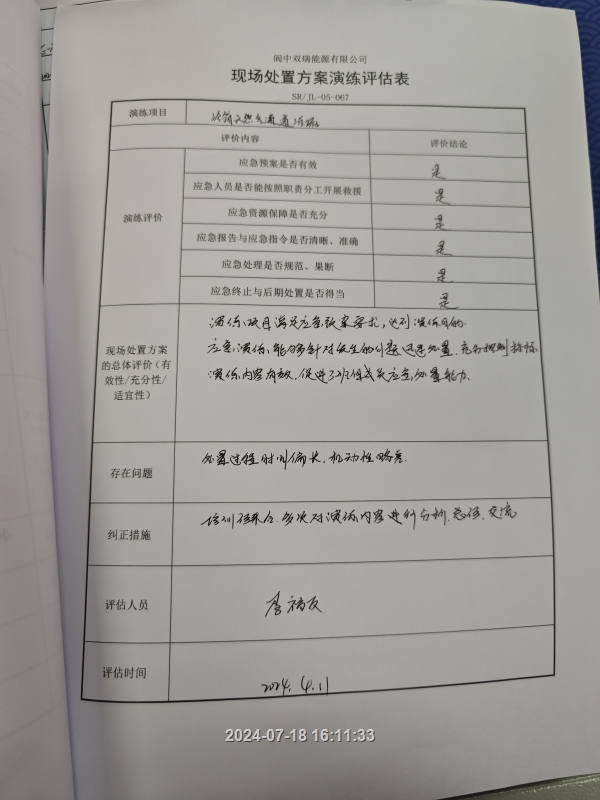 阆中双瑞能源有限公司
现场处置方案演练评估表
SR/JL-05-067
演练项目
冷箱天然气通道
评价内容 评价结论
演练评价
应急预案是否有效 是
应急人员是否能按照职责分工开展救援 是
应急资源保障是否充分 是
应急报告与应急指令是否清晰、准确 是
应急处理是否规范、果断 是
应急终止与后期处置是否得当 是
现场处置方案
的总体评价（有
效性/充分性/
适宜性）
演练项目满足应急预案要求，达到演练目的
应急演练，能够针对发生的问题迅速处置，充分
演练内容有效，促进了班组成员应急处置能力.
存在问题
处置过程时间偏长，机动性略差.
纠正措施
培训结合.多次对演练内容进行分析、总结、交流
评估人员
评估时间
2024.4.11
2024-07-18 16:11:33